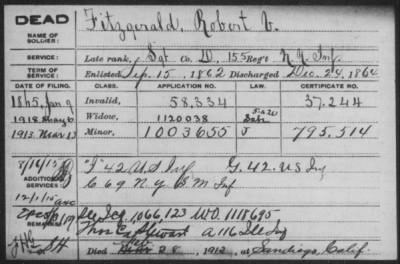 DEAD
NAME OF SOLDIER:
Fitzgerald, Robert V.
SERVICE:
Late rank, Sgt Co. D, 155 Reg't N.Y. Inf.
TERM OF SERVICE:
Enlisted Sep. 15, 1862 Discharged Dec. 24, 1864
DATE OF FILING. CLASS. APPLICATION NO. LAW. CERTIFICATE NO.
1865, Jan 9 Invalid, 58,334 37,244
1918 May 6 Widow, 1120038
1913 Mar 13 Minor, 1003655 795,514
8/14/15 "I" 42 U.S. Inf G. 42. US Inf
ADDITIONAL SERVICES
C 69 N.Y. S M Inf
12/1/15
REMARKS:
1066,123 W.O. 1118695
Mrs Stewart A 116 Ills Inf
Died 28, 1912, at Sandiego, Calif.